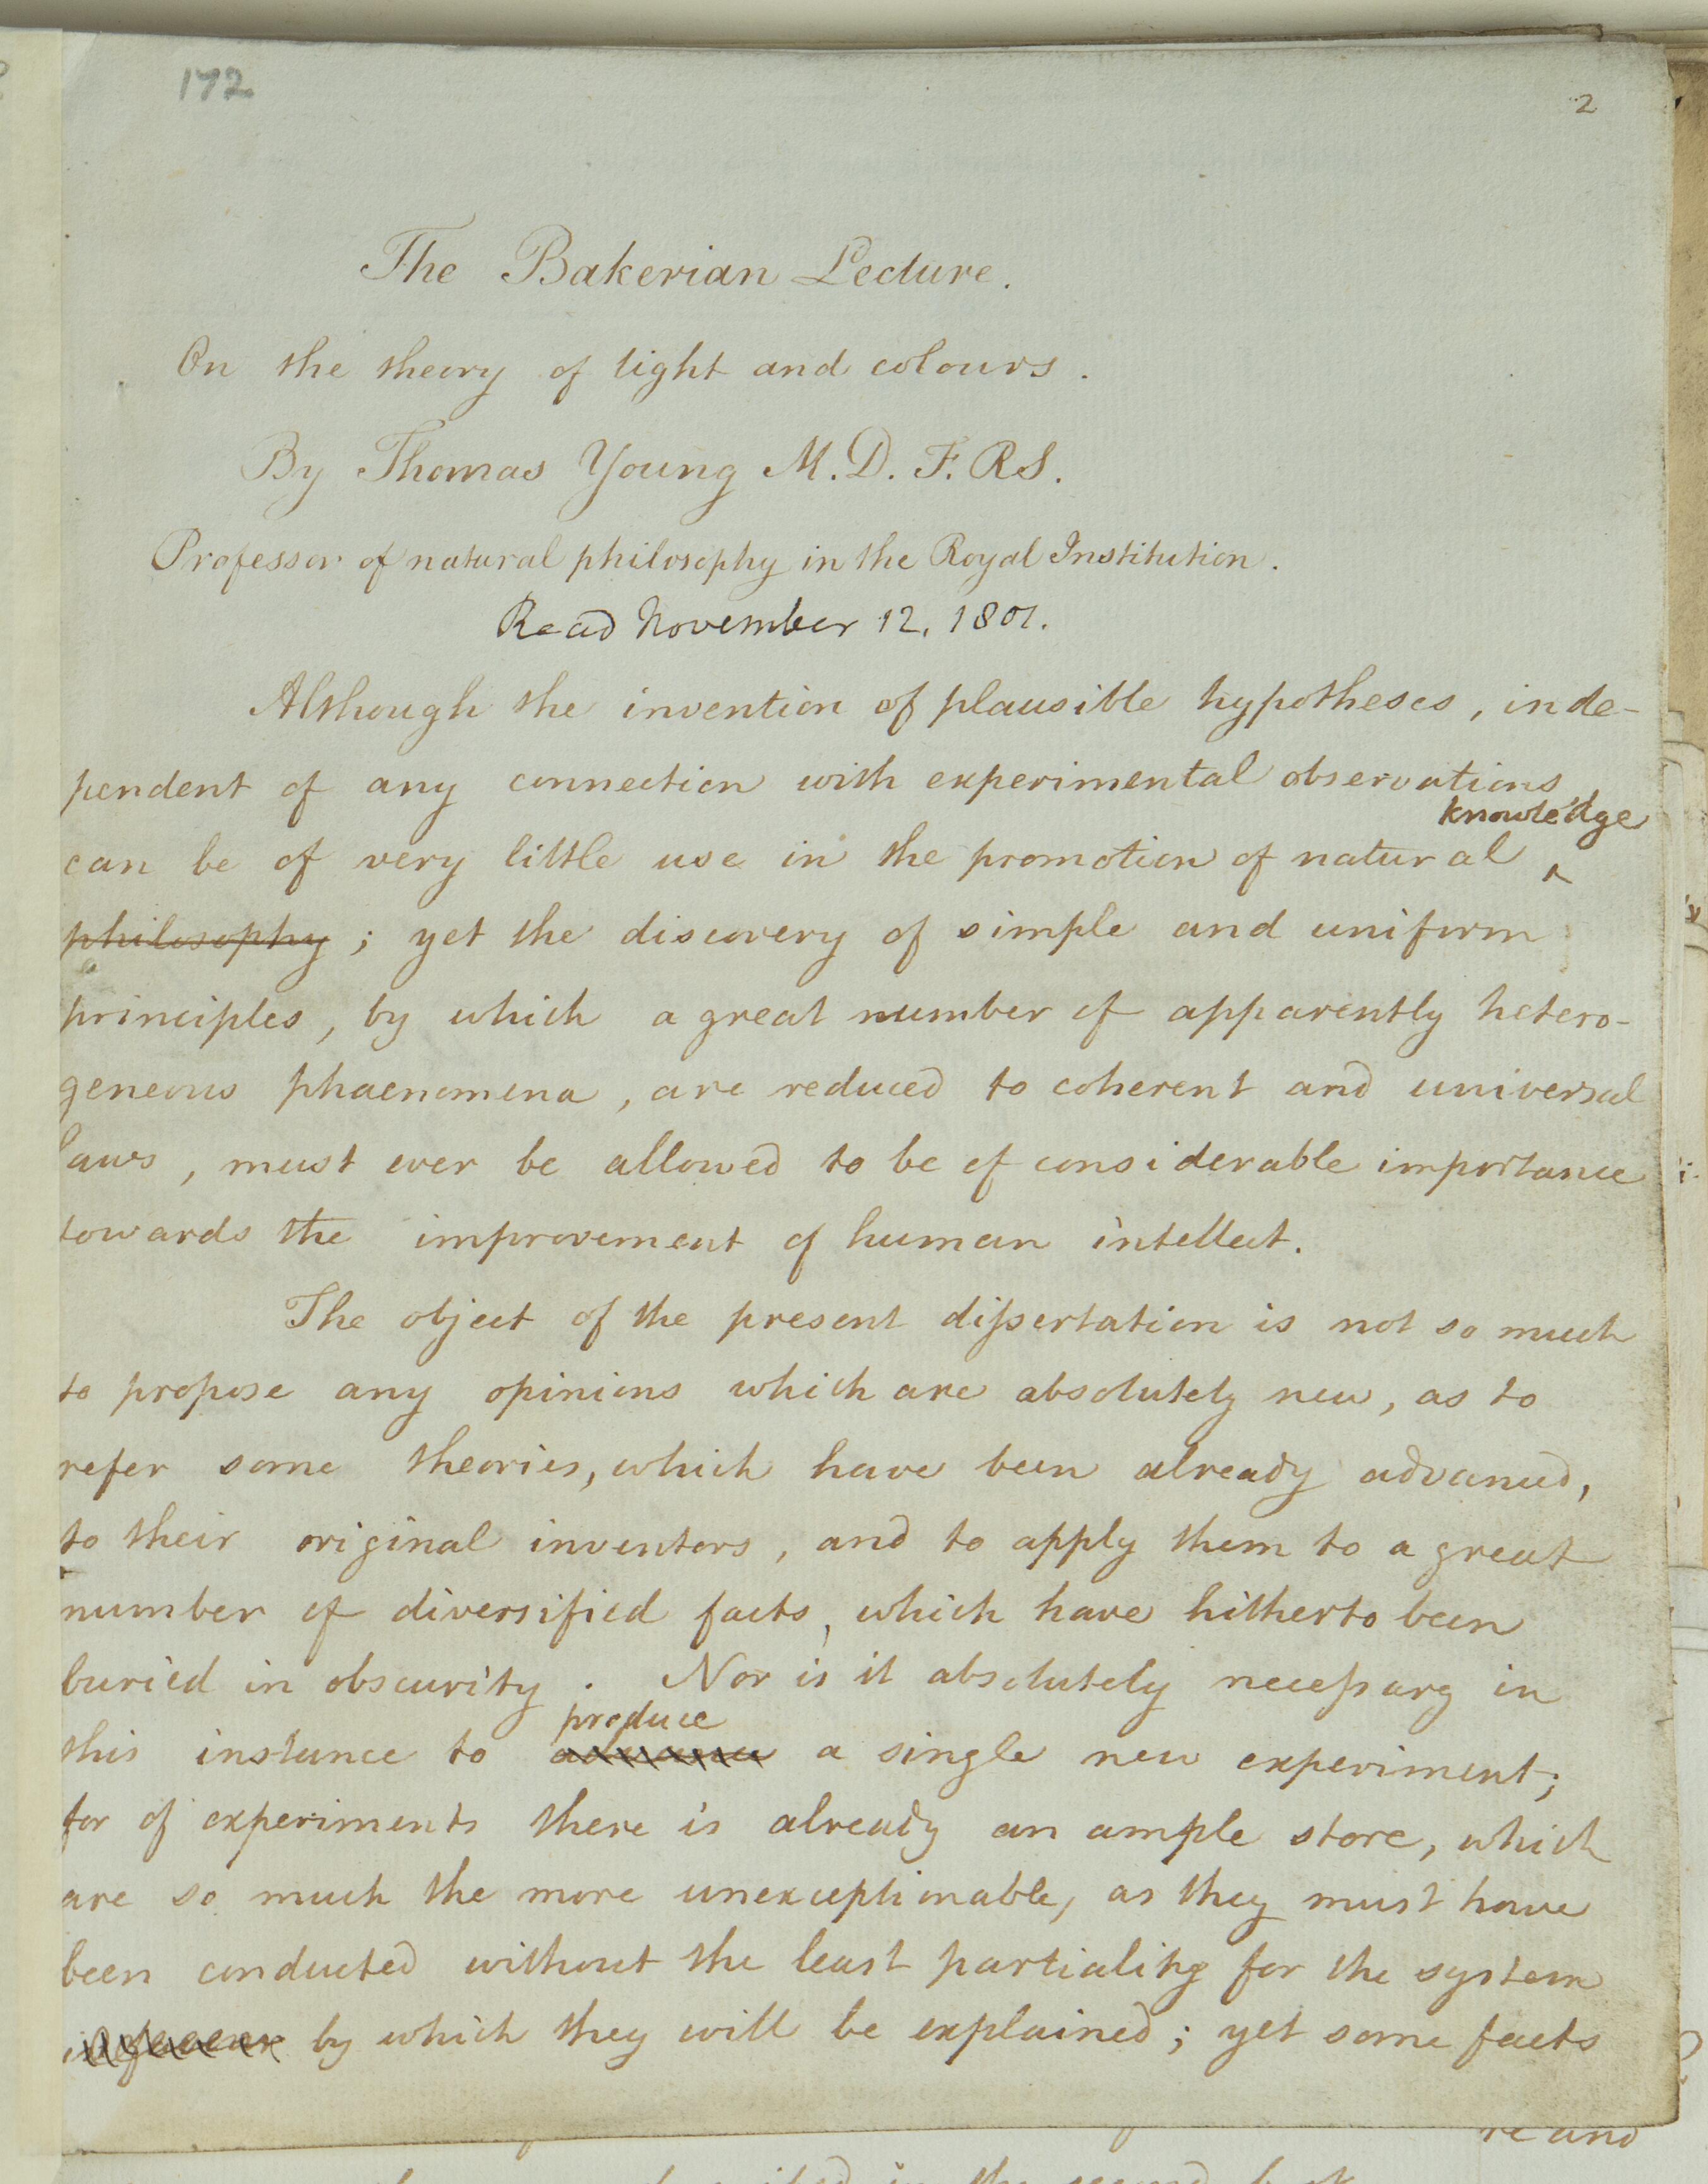 172
2
The Bakerian Lecture.
On the theory of light and colours.
By Thomas Young M.D. F.RS.
Professor of natural philosophy in the Royal Institution.
Read November 12. 1801.
Although the invention of plausible hypotheses, inde-
pendent of any connection with experimental observations,
knowledge
can be of very little use in the promotion of natural ‸
philosophy; yet the discovery of simple and uniform
principles, by which a great number of apparently hetero-
geneous phaenomena, are reduced to coherent and universal
laws, must ever be allowed to be of considerable importance
towards the improvement of human intellect.
The object of the present dissertation is not so much
to propose any opinions which are absolutely new, as to
refer some theories, which have been already advanced,
to their original inventors, and to apply them to a great
number of diversified facts, which have hitherto been
buried in obscurity. Nor is it absolutely necessary in
produce
this instance to advance a single new experiment;
for of experiments there is already an ample store, which
are so much the more unexceptionable, as they must have
been conducted without the least partiality for the system
by which they will be explained; yet some facts